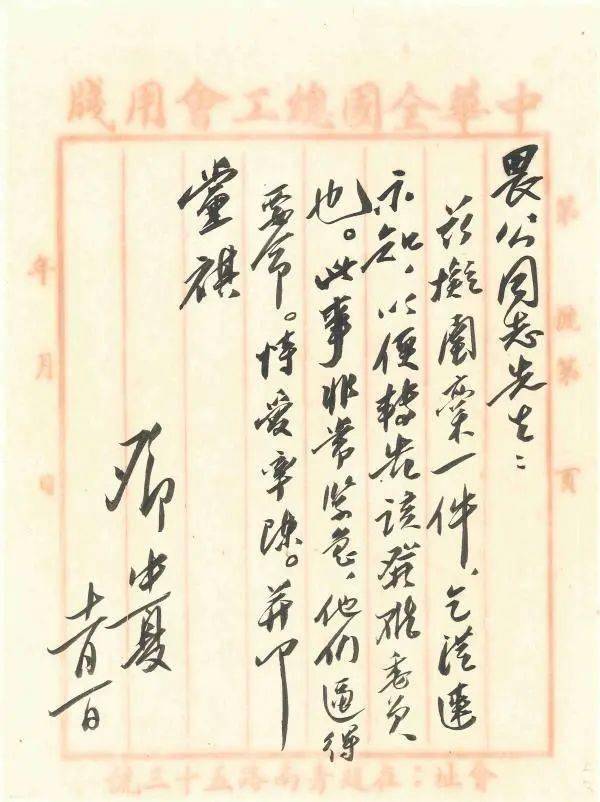 中華全國總工會用牋
第 號第 頁
畏公同志先生：
茲擬圖案一件，乞從速
示知，以便轉告該委員
也。此事非常緊急，他们逼得
要命。恃愛率陳。并叩
黨祺
鄧中夏
十一月一日
年 月 日
會址：在越秀南路五十三號